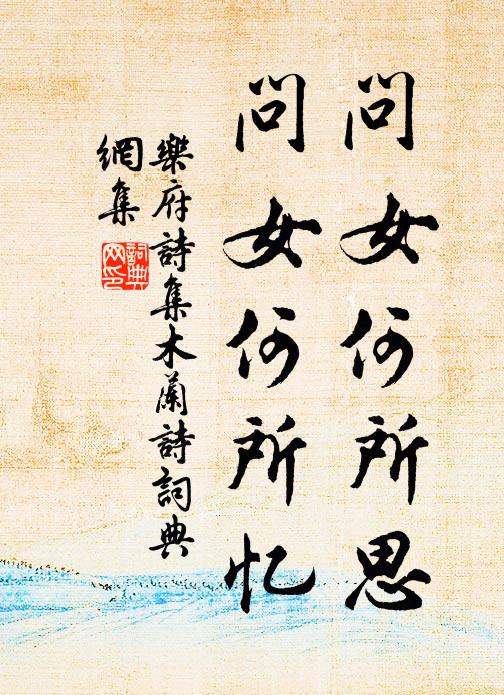 問女何所思
問女何所忆
樂府詩集木蘭詩詞典
網集
詞典
网印